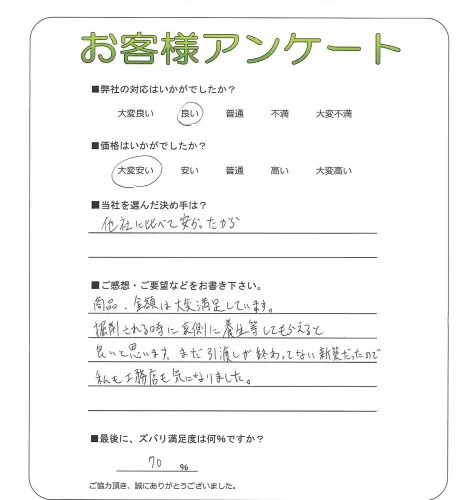 お客様アンケート
■弊社の対応はいかがでしたか？
大変良い 良い 普通 不満 大変不満
■価格はいかがでしたか？
大変安い 安い 普通 高い 大変高い
■当社を選んだ決め手は？
他社に比べて安かったから
■ご感想・ご要望などをお書き下さい。
商品、金額は大変満足しています。
掘削される時に裏側に養生等してもらえると
良いと思います。まだ引渡しが終わってない新築だったので
私も工務店も気になりました。
■最後に、ズバリ満足度は何%ですか？
70 %
ご協力頂き、誠にありがとうございました。